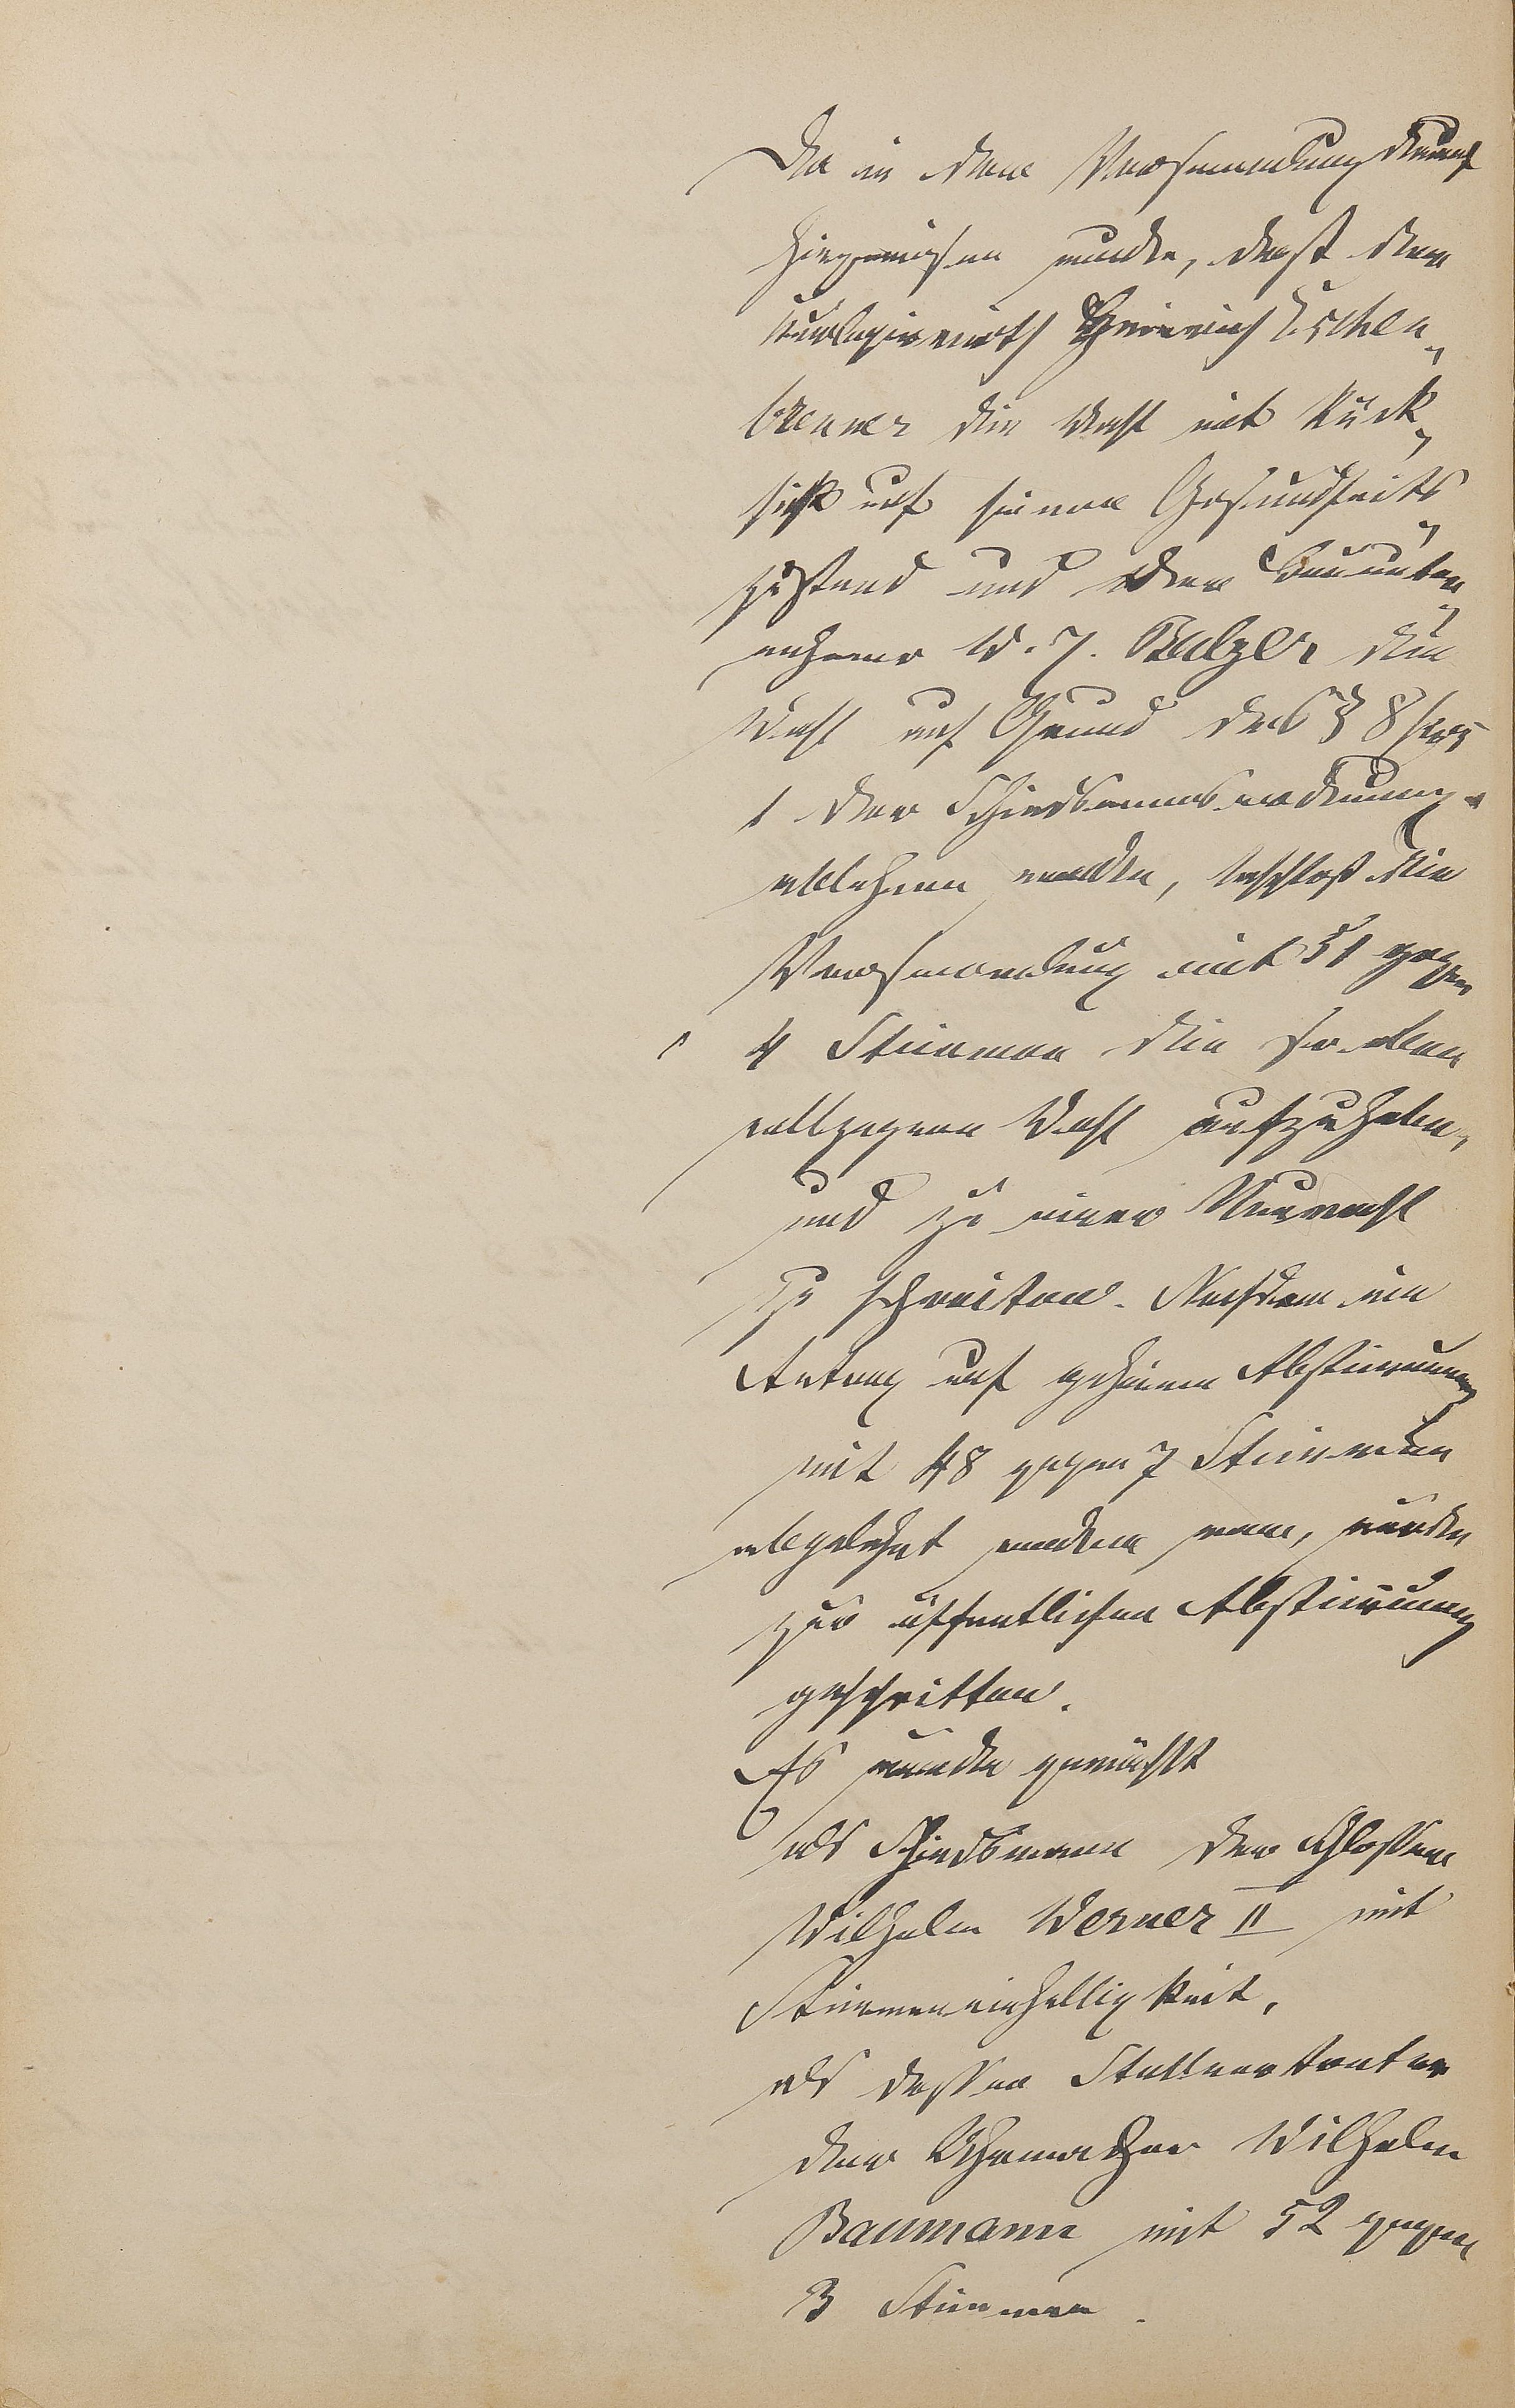 Da in der Versammlung darauf
hingewiesen wurde, daß der
Kurlogirwirth Heinrich Eschen„
brenner die Wahl mit Rück„
sicht auf seinen Gesundheits„
zustand und der Bauunter„
nehmer W. J. Balzer die
Wahl auf Grund des § 8 
1 der Schiedsmannsordnung
ablehnen würden, beschloß die
Versammlung mit 51 gegen
4 Stimmen die so eben
vollzogene Wahl aufzuheben,
und zu einer Neuwahl
zu schreiten. Nachdem ein
Antrag auf geheime Abstimmung
mit 48 gegen 7 Stimmen
abgelehnt worden war, wurde
zur öffentlichen Abstimmung
geschritten.
Es wurde gewählt
als Schiedsmann der Schlosser
Wilhelm Werner II mit
Stimmeneinhelligkeit,
als dessen Stellvertreter
der Uhrmacher Wilhelm
Baumann mit 52 gegen
3 Stimmen.